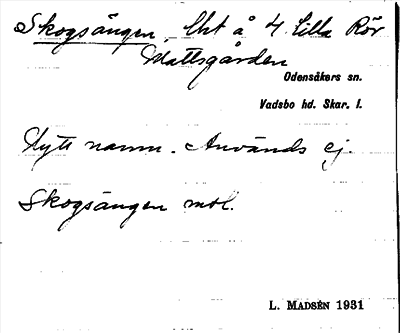 Skogsängen, Uht å 4. Lilla Rör
Mattsgården
Odensåkers sn.
Vadsbo hd. Skar. l.
Nytt namn. Används ej.
Skogsängen mtl.
L. MADSÉN 1931